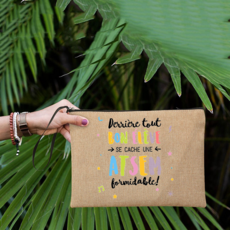 Derrière tout
SE CACHE UNE
ATSEM
formidable!